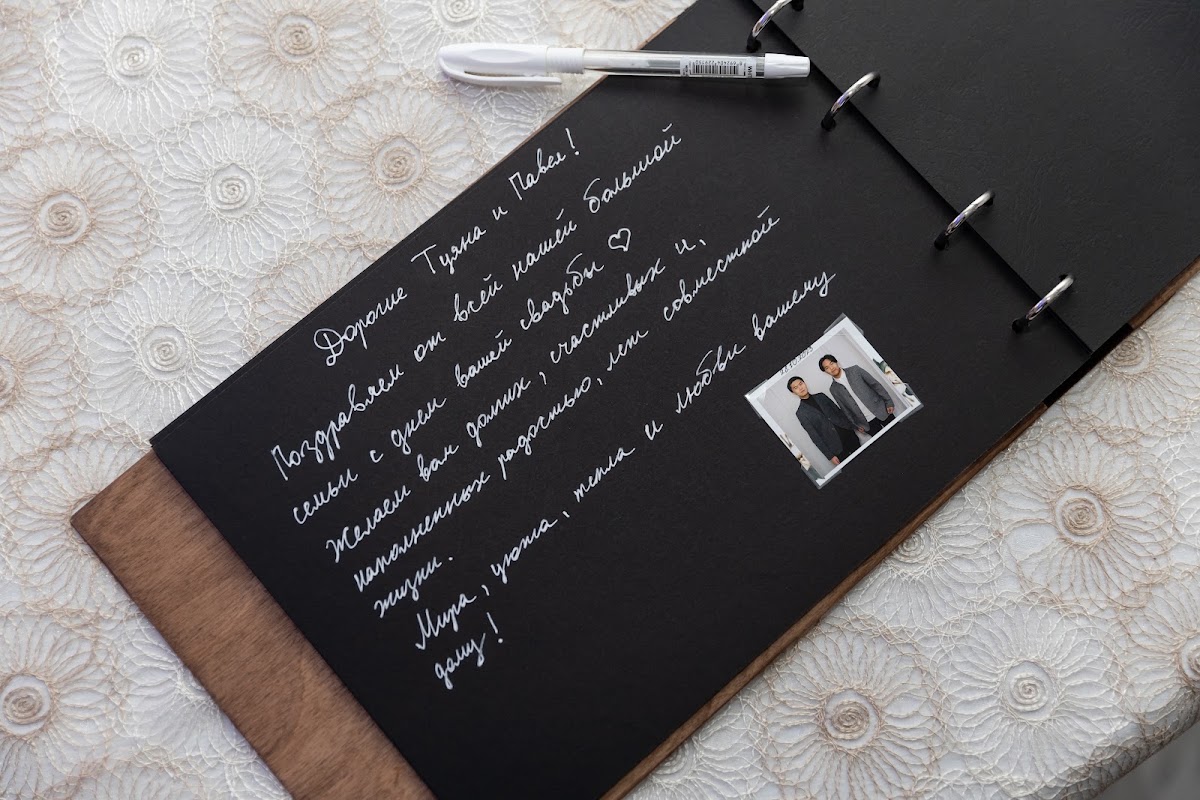 Дорогие Туяна и Павел!
Поздравляем от всей нашей большой
семьи с днем вашей свадьбы ♡
Желаем вам долгих, счастливых и,
наполненных радостью, лет совместной
жизни.
Мира, уюта, тепла и любви вашему
дому!